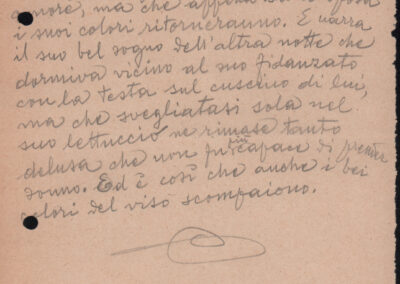 amore, ma che appena
i suoi colori ritorneranno. E narra
il suo bel sogno dell'altra notte che
dormiva vicino al suo fidanzato
con la testa sul cuscino di lui,
ma che svegliatasi sola nel
suo lettuccio ne rimase tanto
delusa che non fu più capace di prender
sonno. Ed è così che anche i bei
colori del viso scompaiono.